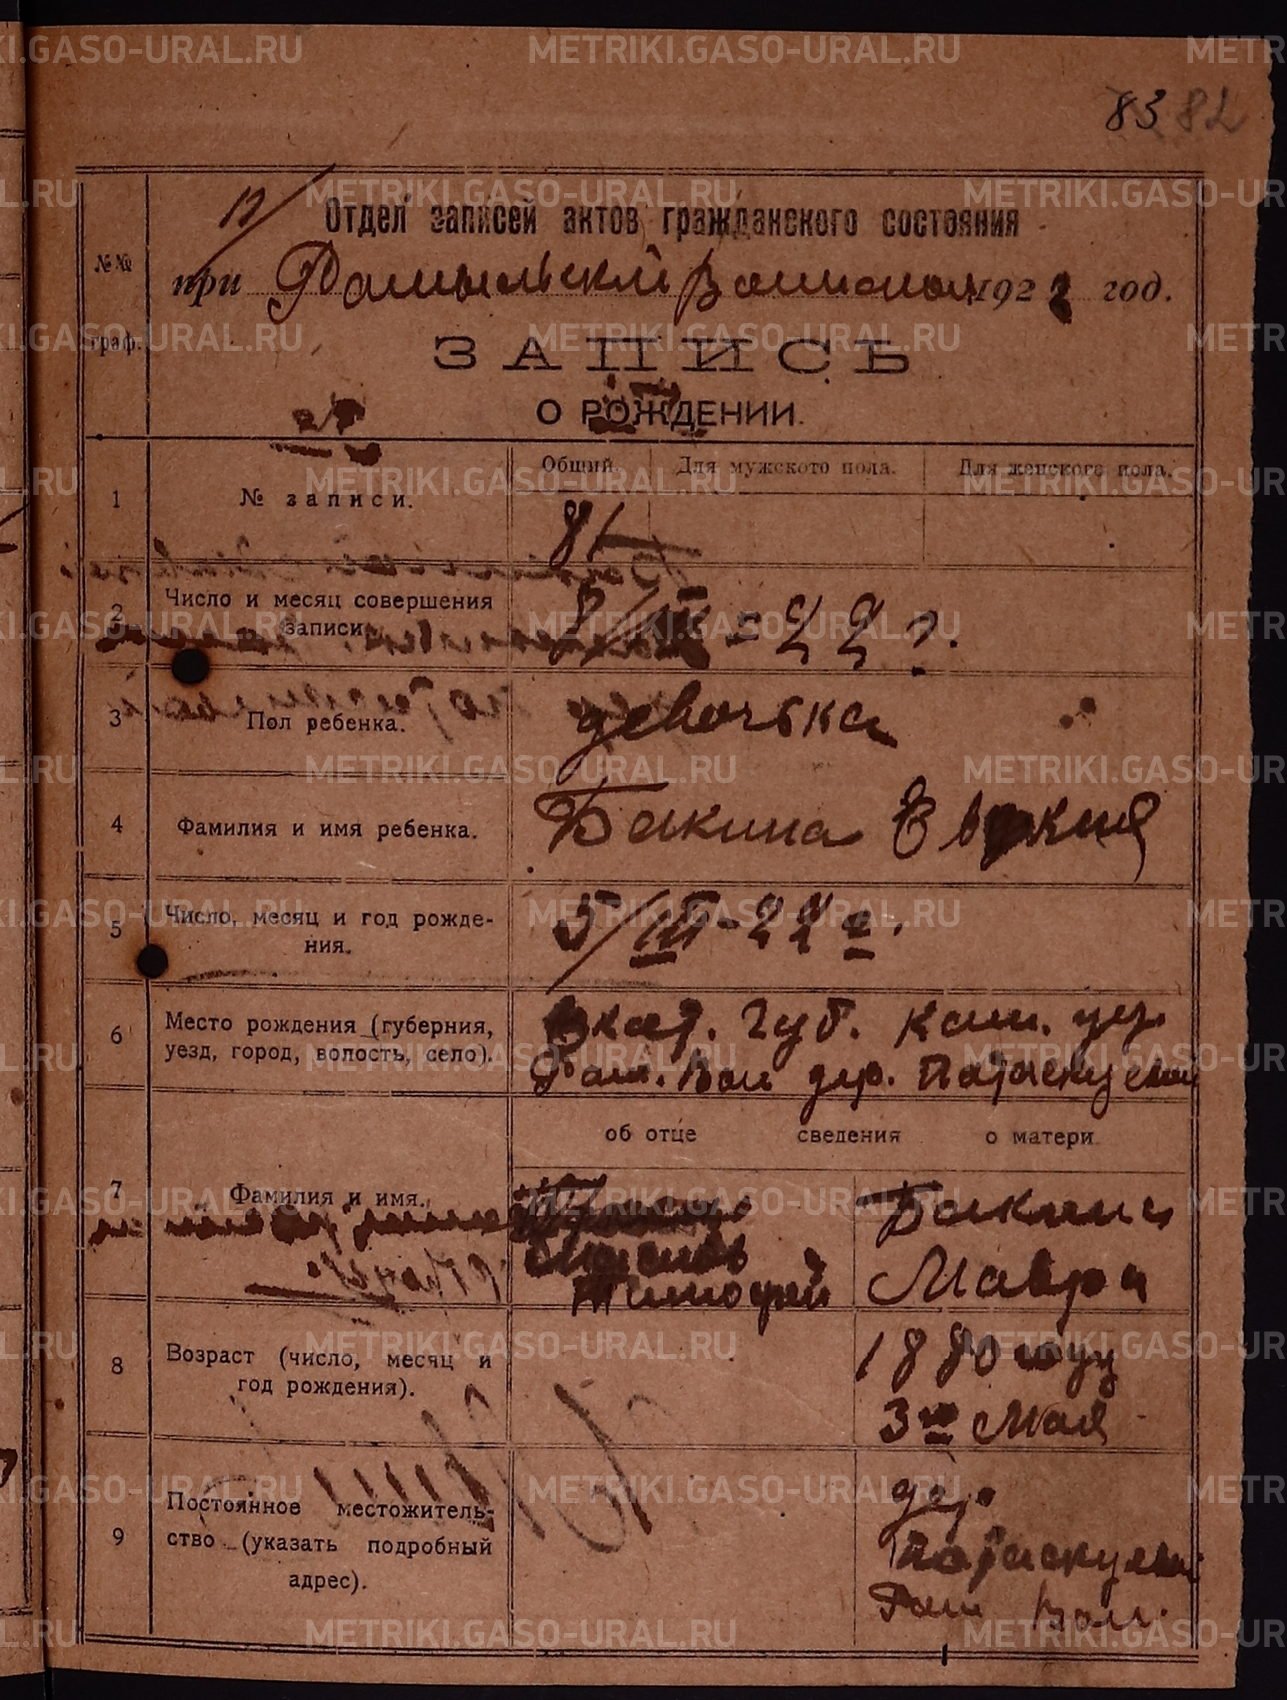 83 82
12/
Отдел записей актов гражданского состояния
при 1922 год.
№№ граф.
ЗАПИСЬ
О РОЖДЕНИИ.
Общий. Для мужского пола. Для женского пола.
1 № записи. 81
2 Число и месяц совершения
записи. 8/III = 22 г.
3 Пол ребенка. девочька
4 Фамилия и имя ребенка. Бакина
5 Число, месяц и год рожде-
ния. 5/III-22 г.
6 Место рождения (губерния, Екат. губ. Кам. уез.
уезд, город, волость, село). Вол дер.
об отце сведения о матери
7 Фамилия и имя. Бакина
Тимофей Мавра
8 Возраст (число, месяц и 1880 году
год рождения). 3го Мая
9 Постоянное местожитель- дер.
ство (указать подробный
адрес). Вол.
METRIKI.GASO-URAL.RU